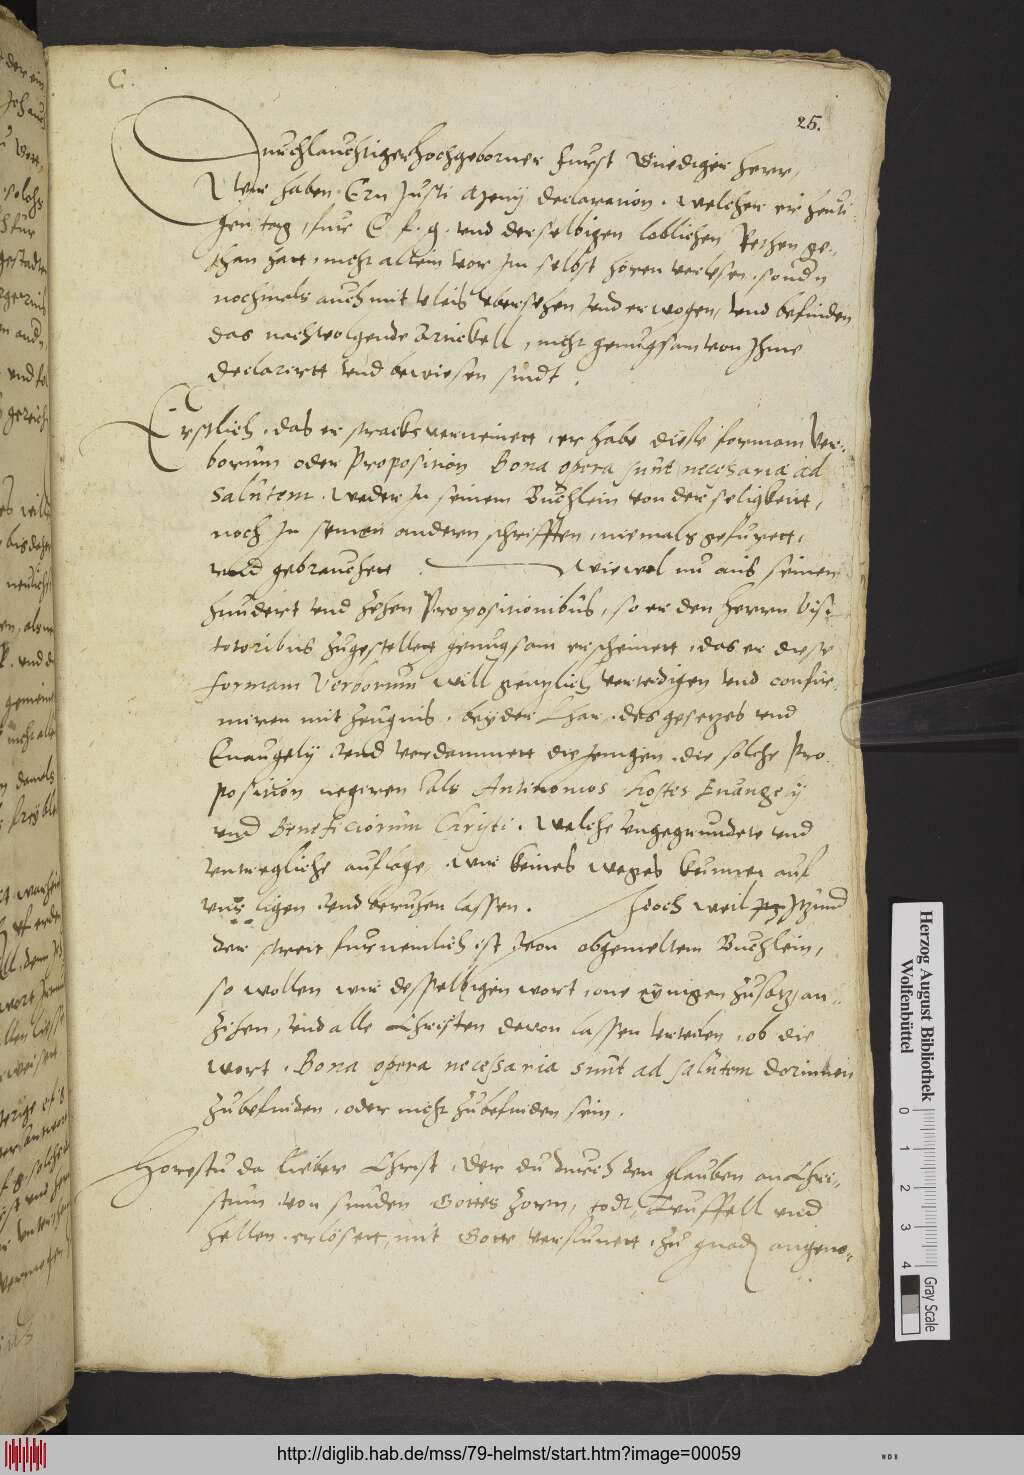 C.
25.
Durchlauchtiger Hochgeborner Furst Gnediger herr,
Wir haben Ern Justi Menij declaration, welcher er heuti-
gen tag, fur E. f. g. vnd derselbigen loblichen Rethen ge-
than hatt, nicht allein von Im selbst horen verlesen, sondn
nochmals auch mit vleis vbersehen vnd erwogen, vnd befinden
das nachvolgende Artickell, nicht genugsam von Ihme
declarirtt vnd bewiesen sindt.
Erstlich, das er stracks verneinett, er habe diesse formam Ver-
borum oder Proposition Bona opera sunt necessaria ad
salutem, weder In seinem Buchlein von der seligkeitt,
noch In seinen andern schrifften, niemals gefurett,
vnd gebrauchett. Wiewol nu aus seinen
hundert vnd zehen Propositionibus, so er den herrn Visi-
tatoribus zugestellett genugsam erscheinett, das er diese
formam Verborum will gentzlich verteidigen vnd confir-
miren mit zeugnis, beyder Lhar, des gesetzes vnd
Euangelij, vnd verdammett die Jenigen, die solche Pro-
position negiren als Antinomos hostes Euangelij
vnd Beneficiorum Christi. Welche vngegrundete vnd
vntregliche auflage, wir keines weges kunnen auf
vns ligen vnd beruhen lassen. Jdoch weil Itzund
der streit furnemlich ist von obgemeltem Buchlein,
so wollen wir desselbigen wort, one eynigen zusatz, an-
zihen, vnd alle Christen davon lassen vrteilen, ob die
wort, Bona opera necessaria sunt ad salutem dorinnen
zubefinden, oder nicht zubefinden sein.
Horestu da lieber Christ, der du durch den glauben an Chri-
stum von sunden Gottes zorn, todt, Teuffell vnd
hellen erlösett, mit Gott versunett, zu gnadn angeno-
Herzog August Bibliothek
Wolfenbüttel
0 1 2 3 4
Gray Scale
http://diglib.hab.de/mss/79-helmst/start.htm?image=00059